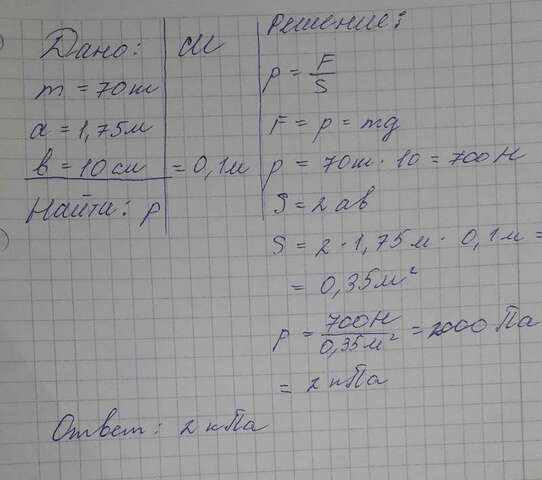 Дано:
СИ
Решение:
m = 70 кг
a = 1,75 м
b = 10 см
= 0,1 м
Найти: p
p = F/S
F = p = mg
p = 70 кг · 10 = 700 Н
S = 2 ab
S = 2 · 1,75 м · 0,1 м =
= 0,35 м²
p = 700 Н / 0,35 м² = 2000 Па
= 2 кПа
Ответ: 2 кПа